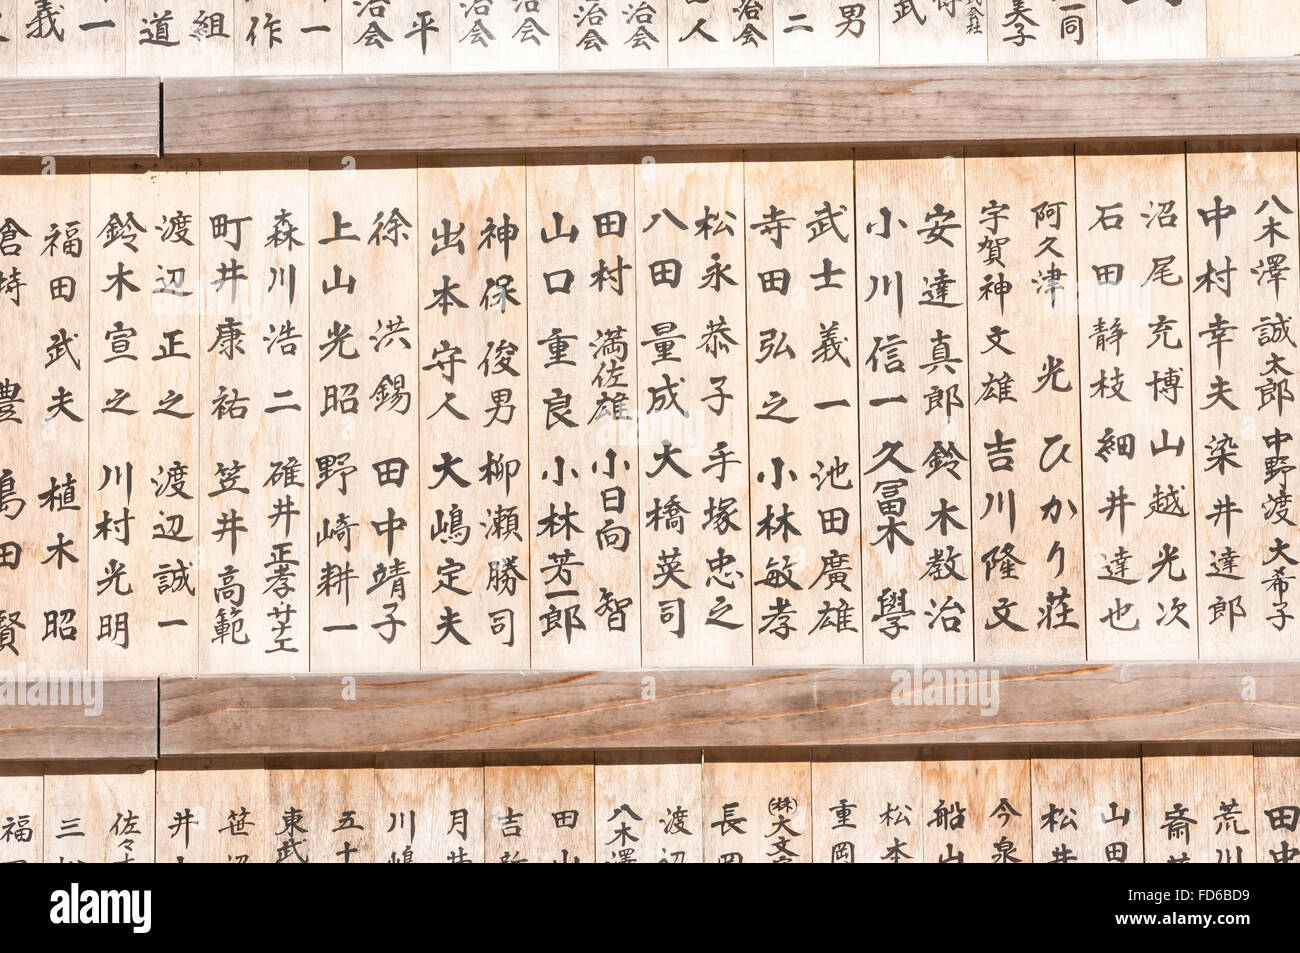 義
一
道
組
作
一
治会
平
治会
治会
治会
治会
人
治会
二
男
武
式会社
美子
一同
八木澤誠太郎 中野渡大希子
中村幸夫 染井達郎
沼尾充博 山越光次
石田静枝 細井達也
阿久津光 ひかり荘
宇賀神文雄 吉川隆文
安達真郎 鈴木教治
小川信一 久冨木學
武士義一 池田廣雄
寺田弘之 小林敏孝
松永恭子 手塚忠之
八田量成 大橋英司
田村満佐雄 小日向智
山口重良 小林芳一郎
神保俊男 柳瀬勝司
出本守人 大嶋定夫
徐洪錫 田中靖子
上山光昭 野崎耕一
森川浩二 碓井正孝 サエ
町井康祐 笠井高範
渡辺正之 渡辺誠一
鈴木宣之 川村光明
福田武夫 植木昭
倉持豊 島田賢
田中
荒川
斎藤
山田
松井
今泉
船山
松本
重岡
(株)大文
長
渡辺
八木澤
田山
吉新
月井
川嶋
五十
東武
笹沼
井上
佐々木
三
福田
alamy
alamy
Image ID: FD6BD9
www.alamy.com